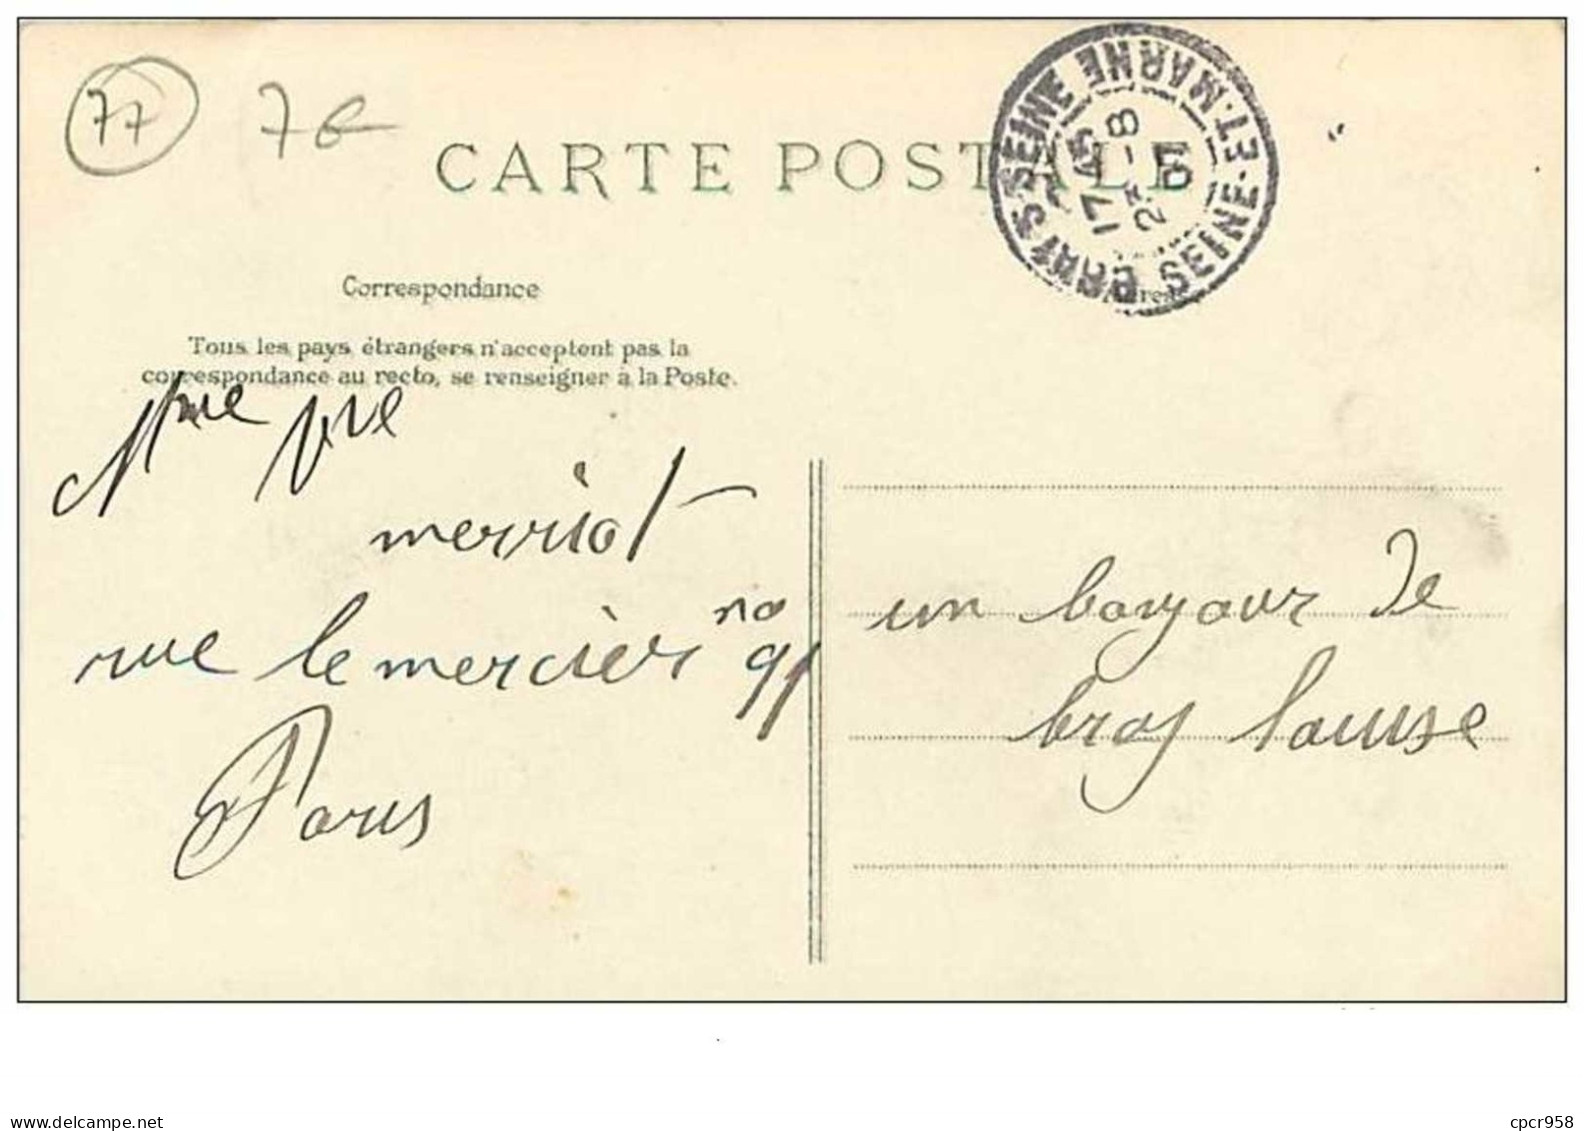 77 7€
CARTE POSTALE
BRAY S SEINE SEINE-ET-MARNE
17 45
2 -8
Correspondance
Tous les pays étrangers n'acceptent pas la
correspondance au recto, se renseigner à la Poste.
Mme Vve
merriot
rue le mercier no
91
Paris
un bonjour de
bray louise
cpcr958